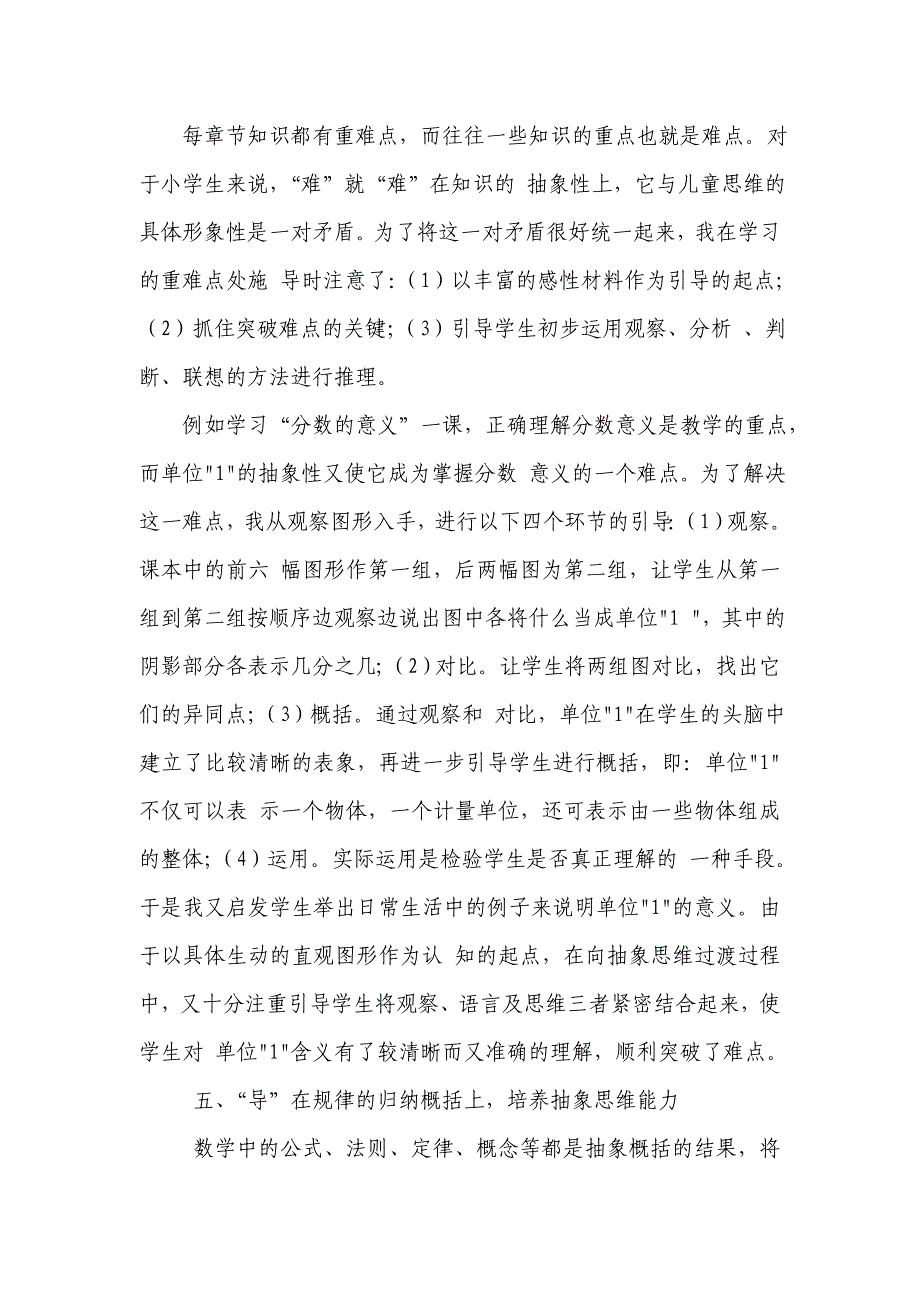 每章节知识都有重难点，而往往一些知识的重点也就是难点。对
于小学生来说，“难”就“难”在知识的 抽象性上，它与儿童思维的
具体形象性是一对矛盾。为了将这一对矛盾很好统一起来，我在学习
的重难点处施 导时注意了：（1）以丰富的感性材料作为引导的起点；
（2）抓住突破难点的关键；（3）引导学生初步运用观察、分析 、判
断、联想的方法进行推理。
例如学习“分数的意义”一课，正确理解分数意义是教学的重点，
而单位"1"的抽象性又使它成为掌握分数 意义的一个难点。为了解决
这一难点，我从观察图形入手，进行以下四个环节的引导：（1）观察。
课本中的前六 幅图形作第一组，后两幅图为第二组，让学生从第一
组到第二组按顺序边观察边说出图中各将什么当成单位"1 "，其中的
阴影部分各表示几分之几；（2）对比。让学生将两组图对比，找出它
们的异同点；（3）概括。通过观察和 对比，单位"1"在学生的头脑中
建立了比较清晰的表象，再进一步引导学生进行概括，即：单位"1"
不仅可以表 示一个物体，一个计量单位，还可表示由一些物体组成
的整体；（4）运用。实际运用是检验学生是否真正理解的 一种手段。
于是我又启发学生举出日常生活中的例子来说明单位"1"的意义。由
于以具体生动的直观图形作为认 知的起点，在向抽象思维过渡过程
中，又十分注重引导学生将观察、语言及思维三者紧密结合起来，使
学生对 单位"1"含义有了较清晰而又准确的理解，顺利突破了难点。
五、“导”在规律的归纳概括上，培养抽象思维能力
数学中的公式、法则、定律、概念等都是抽象概括的结果，将